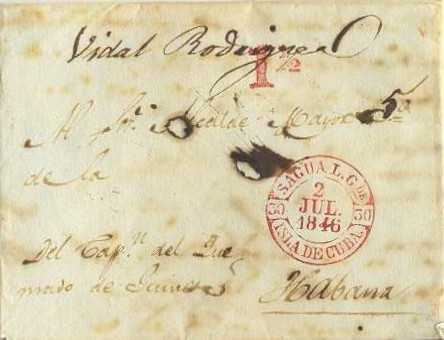 Vidal Rodriguez
1 1/2
Al Sr. Alcalde Mayor 5º
de la
SAGUA.L.G.DE
30 2 30
JUL.
1846
ISLA DE CUBA.
Del Cap.n del Que
mado de Guines
Habana